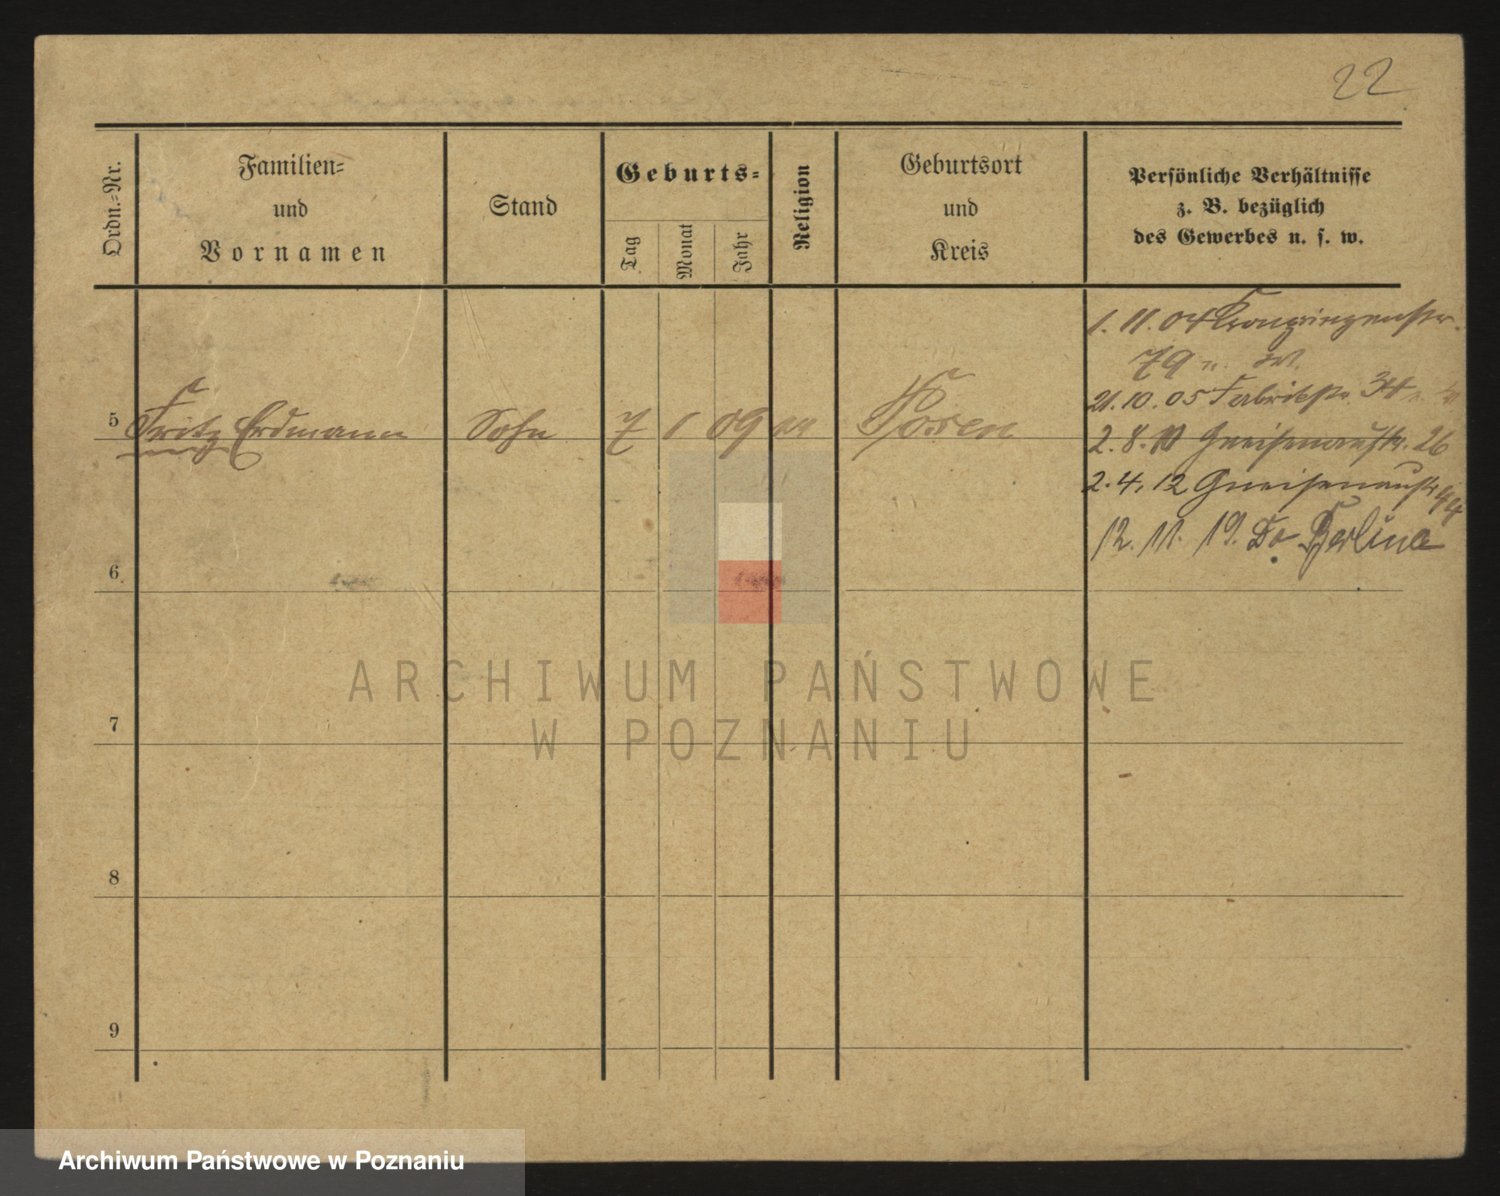 22
Ordn.-Nr.
Familien-
und
Vornamen
Stand
Geburts-
Tag
Monat
Jahr
Religion
Geburtsort
und
Kreis
Persönliche Verhältnisse
z. B. bezüglich
des Gewerbes u. s. w.
1. 11. 04 Kronprinzenstr.
79
21. 10. 05 Fabrikstr. 34
5 Fritz Erdmann Sohn 7 1 09 Posen
2. 8. 10 Gneisenaustr. 26
2. 4. 12 Gneisenaustr 44
12. 11. 19.
6
7
8
9
ARCHIWUM PAŃSTWOWE
W POZNANIU
Archiwum Państwowe w Poznaniu